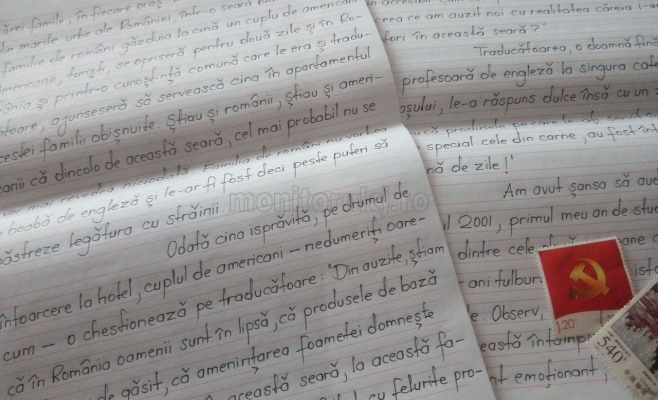 cărei familii, în fiecare oraș
din marile urbe ale României, într-o seară
familie de români găzduia la cină un cuplu de americani
Americanii, turiști, se opriseră pentru două zile și în Ro-
mânia și printr-o cunoștință comună care le era și tradu-
cătoare, ajunseseră să servească cina în apartamentul
acestei familii obișnuite. Știau și românii, știau și ameri-
canii că dincolo de această seară, cel mai probabil nu se
vor mai revedea niciodată. Familia de români nu vorbea
o boabă de engleză și le-ar fi fost deci peste puteri să
păstreze legătura cu străinii.
Odată cina isprăvită, pe drumul de
întoarcere la hotel, cuplul de americani – nedumeriți oare-
cum – o chestionează pe traducătoare: "Din auzite, știam
că în România oamenii sunt în lipsă, că produsele de bază
de găsit, că amenințarea foametei domnește
această seară, la această fa-
cu felurite pro-
ceea ce am auzit noi cu realitatea căreia i-am
fori în această seară?"
Traducătoarea, o doamnă fină
profesoară de engleză la singura cate
așului, le-a răspuns dulce însă cu un
special cele din carne, au fost
nă de zile!"
Am avut șansa să aud
l 2001, primul meu an de stud
dintre cele
ani tulbur
e. Observ,
eastă întâmp
nt emoționant,
monitorulcj.ro
1.20
5.40